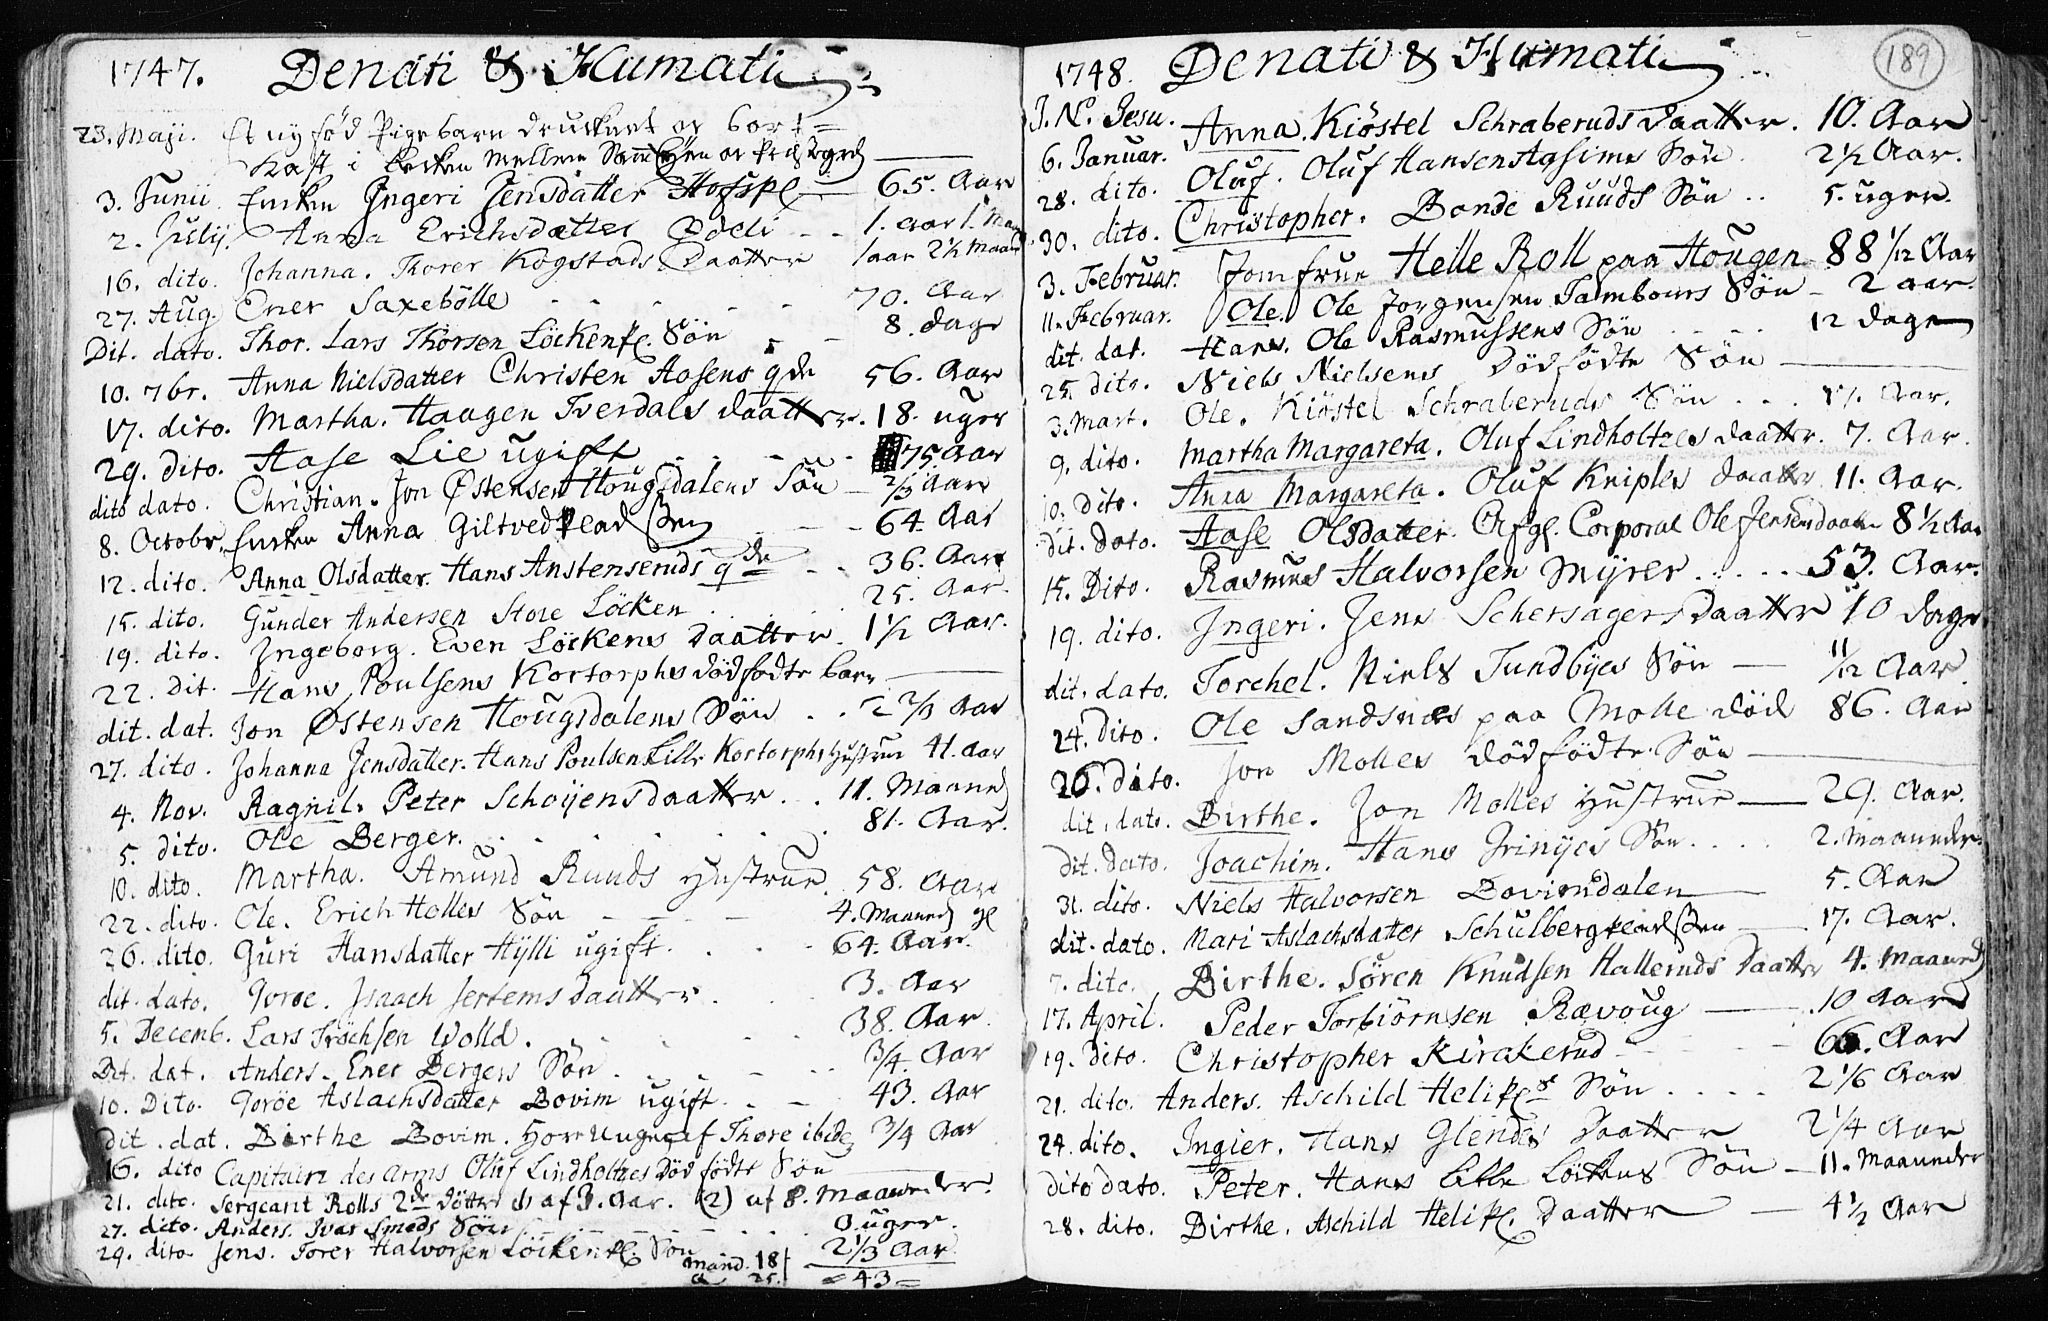 1747. Denati & Humati
23. Maji. Et ny fød Pige barn druknet og bort=
kast i becken mellem
3. Junii. Encken Ingeri Jensdatter Hofspl. 65. Aar
2. Julij. Anna Erichsdatter Odeli - - 1. aar 1. Maa
16. dito. Johanna. Thorer Kogstads Daatter 1 aar 2½ Maan
27. Aug. Ener Saxebölle - - - 70. Aar
Dit. dato. Thor. Lars Thorsen Löckenpl. Sön - - 8. dage
10. 7br. Anna Nielsdatter Christen Aosens qde 56. Aar
17. dito. Martha. Haagen Tverdals daatter. 18. uger
29. dito. Aase Lie ugift - - - 75. Aar
dito dato. Christian. Jon Østensen Hougsdalens Sön - 2/3 Aar
8. Octobr. Encken Anna Giltvedpladssen - - 64. Aar
12. dito. Anna Olsdatter. Hans Anstensruds qde - - 36. Aar
15. dito. Gunder Andersen Store Löcken . . . . 25. Aar.
19. dito. Ingeborg. Even Löckens Daatter. 1½ Aar.
22. Dit. Hans Poulsens Kortorphs dödfödte barn
dit. dat. Jon Østensen Hougsdalens Sön . . 2 2/3 Aar
27. dito. Johanna Jensdatter. Hans Poulsen Lille Kortorphs Hustrue 41. Aar
4. Nov. Ragnil. Peter Schoijens daatter . . . 11. Maaned
5. dito. Ole Berger. . . . . . . 81. Aar.
10. dito. Martha. Amund Ruuds Hustrue. 58. Aar
22. dito. Ole. Erich Holles Sön - - - - 4. Maaned gl
26. dito. Guri Hansdatter Hÿlli ugift. . . . 64. Aar.
dit. dato. Goroe. Isaach Jertems daatter . . 3. Aar
5. Decemb. Lars Tröchsen Wolld. . . . . 38. Aar
Dit. dat. Anders. Ener Bergers Sön . . . - - 3/4. Aar
10. Dito. Goröe Aslachsdatter Bovim ugift. - - 43. Aar
dit. dat. Birthe Bovim. Hore Unge af Thore ibid. 3/4 Aar
16. dito Capitain des Arms Oluf Lindholtzes död födte Sön
21. dito. Sergeant Rolls 2de döttre (1) af 3. Aar. (2) af 8. Maaneder.
27. dito. Anders. Ivar Smeds Sön - - - 3 uger.
29. dito. Jens. Torer Halvorsen Löckenpl. Sön 2 1/3 Aar.
Mand. 18
Q 25.
= 43 =
189
1748. Denati & Humati
J. N. Jesu.
6. Januar. Anna. Kiöstel Schraberuds daatter. 10. Aar
28. dito. Oluf. Oluf Hansen Agsims Sön. 2½ Aar.
30. dito. Christopher. Bonde Ruuds Sön . . 5. uger.
3. Februar. Jomfrue Helle Roll paa Hougen 88 1/12 Aar
11. Februar. Ole. Ole Jorgensen Tambours Sön - 2 aar.
dit. dat. Hans. Ole Rasmussens Sön - - - 12 dage
25. dito. Niels Nielsens dödfödte Sön
3. Mart. Ole. Kiöstel Schraberuds Sön . . . 17. Aar.
9. dito. Martha Margareta. Oluf Lindholtzes daatter. 7. Aar.
10. Dito. Anna Margareta. Oluf Kniples daatter 11. Aar.
dit. dato. Aase Olsdatter. Afgl. Corporal Ole Jensens daatter 8½ Aar
15. Dito. Rasmus Halvorsen Myrer . . . . . 53. Aar.
19. dito. Ingeri. Jens Schersagers daatter 10 dage
dit. dato. Torchel. Niels Tundbÿes Sön - 11/12 Aar.
24. dito. Ole Sandsnes paa Molle död 86. Aar
26. dito. Jon Molles dödfödte Sön
dit. dato. Birthe. Jon Molles Hustrue 29. Aar.
dit. dato. Joachim. Hans Frinÿes Sön . . . . 2. Maaneder
31. dito. Niels Halvorsen Bovimdalen 5. Aar
dit. dato. Mari Aslachsdatter Schulbergpladssen 17. Aar.
7. dito. Birthe. Sören Knudsen Halleruds Daatter 4. Maaned
17. April. Peder Torbiörnsen Rævoug 10 Aar
19. Dito. Christopher Kirakerud - - - - 66. Aar
21. dito. Anders. Aschild Helipls Sön . . . . 2 1/6 Aar
24. dito. Ingier. Hans Glendes Daatter 2 1/4 Aar
dito dato. Peter. Hans Lille Löckens Sön - 11. Maaneder
28. dito. Birthe. Aschild Helipl. Daatter - 4½ Aar